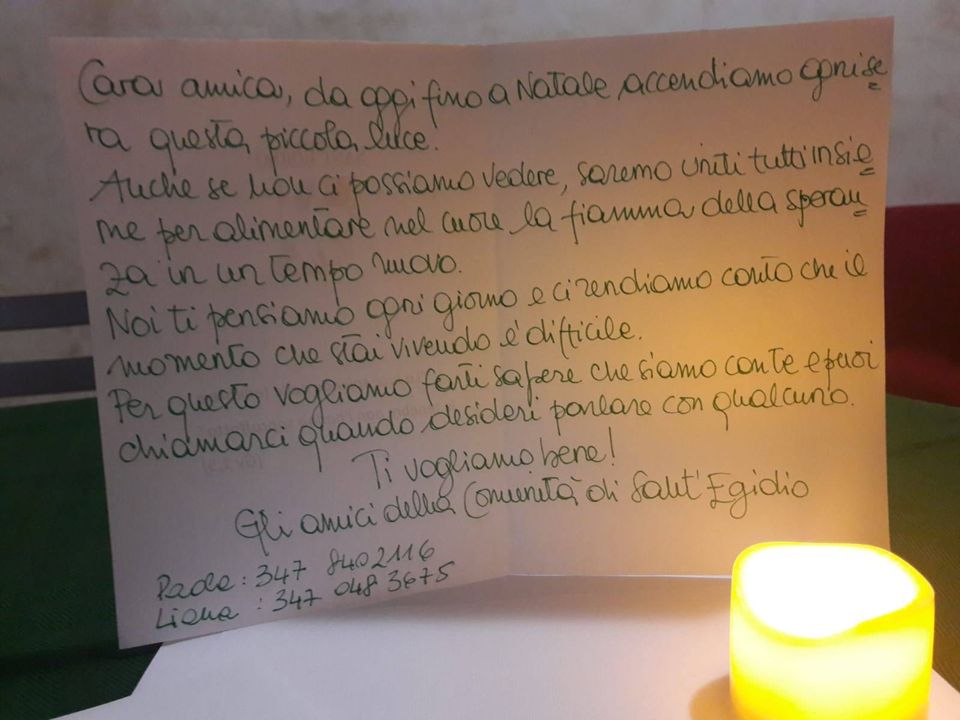 Cara amica, da oggi fino a Natale accendiamo ogni se
ra questa piccola luce!
Anche se non ci possiamo vedere, saremo uniti tutti insie
me per alimentare nel cuore la fiamma della speran
za in un tempo nuovo.
Noi ti pensiamo ogni giorno e ci rendiamo conto che il
momento che stai vivendo è difficile.
Per questo vogliamo farti sapere che siamo con te e puoi
chiamarci quando desideri parlare con qualcuno.
Ti vogliamo bene!
Gli amici della Comunità di Sant'Egidio
Paola: 347 8402116
Liana: 347 048 3675